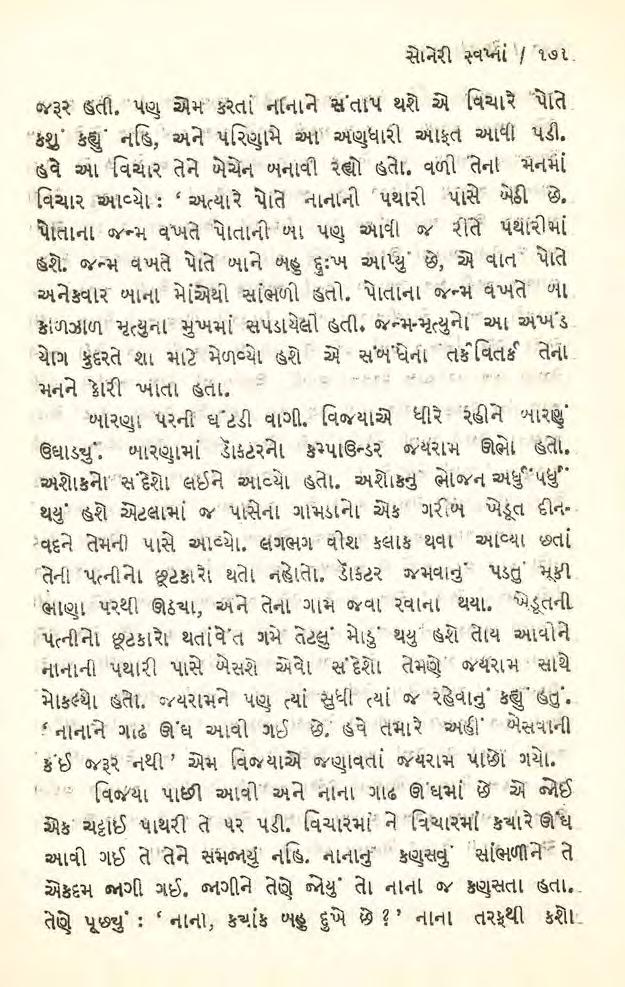 સોનેરી સ્વપ્નાં / ૧૭૧
જરૂર હતી. પણ એમ કરતાં નાનાને સંતાપ થશે એ વિચારે પોતે
કશું કહ્યું નહિ, અને પરિણામે આ અણધારી આફત આવી પડી.
હવે આ વિચાર તેને બેચેન બનાવી રહ્યો હતો. વળી તેના મનમાં
વિચાર આવ્યો : ‘ અત્યારે પોતે નાનાની પથારી પાસે બેઠી છે.
પોતાના જન્મ વખતે પોતાની બા પણ આવી જ રીતે પથારીમાં
હશે. જન્મ વખતે પોતે બાને બહુ દુઃખ આપ્યું છે, એ વાત પોતે
અનેકવાર બાના મોંએથી સાંભળી હતી. પોતાના જન્મ વખતે બા
કાળઝાળ મૃત્યુના મુખમાં સપડાયેલી હતી. જન્મ-મૃત્યુનો આ અખંડ
યોગ કુદરતે શા માટે મેળવ્યો હશે એ સંબંધેના તર્કવિતર્ક તેના
મનને કોરી ખાતા હતા.
બારણા પરની ઘંટડી વાગી. વિજયાએ ધીરે રહીને બારણું
ઉઘાડ્યું. બારણામાં ડૉકટરનો કમ્પાઉન્ડર જયરામ ઊભો હતો.
અશોકનો સંદેશો લઈને આવ્યો હતો. અશોકનું ભોજન અર્ધુંપર્ધું
થયું હશે એટલામાં જ પાસેના ગામડાનો એક ગરીબ ખેડૂત દીન-
વદને તેમની પાસે આવ્યો. લગભગ વીશ કલાક થવા આવ્યા છતાં
તેની પત્નીનો છૂટકારો થતો નહોતો. ડૉકટર જમવાનું પડતું મૂકી
ભાણા પરથી ઊઠયા, અને તેના ગામ જવા રવાના થયા. ખેડૂતની
પત્નીનો છૂટકારો થતાંવેંત ગમે તેટલું મોડું થયું હશે તોય આવીને
નાનાની પથારી પાસે બેસશે એવો સંદેશો તેમણે જયરામ સાથે
મોકલ્યો હતો. જયરામને પણ ત્યાં સુધી ત્યાં જ રહેવાનું કહ્યું હતું.
‘ નાનાને ગાઢ ઊંઘ આવી ગઈ છે. હવે તમારે અહીં બેસવાની
કંઈ જરૂર નથી ’ એમ વિજયાએ જણાવતાં જયરામ પાછો ગયો.
વિજયા પાછી આવી અને નાના ગાઢ ઊંઘમાં છે એ જોઈ
એક ચટ્ટાઈ પાથરી તે પર પડી. વિચારમાં ને વિચારમાં કયારે ઊંઘ
આવી ગઈ તે તેને સમજાયું નહિ. નાનાનું કણસવું સાંભળીને તે
એકદમ જાગી ગઈ. જાગીને તેણે જોયું તો નાના જ કણસતા હતા.
તેણે પૂછ્યું : ‘ નાના, કયાંક બહુ દુખે છે ? ’ નાના તરફથી કશો